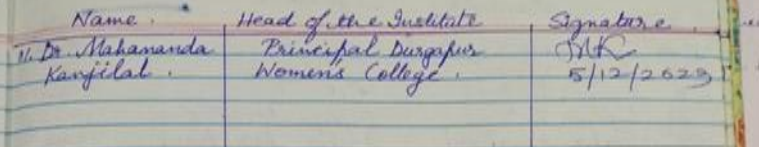 Name. Head of the Institute Signature.
1. Dr. Mahananda Principal Durgapur
Kanjilal. Women's College. 5/12/2023